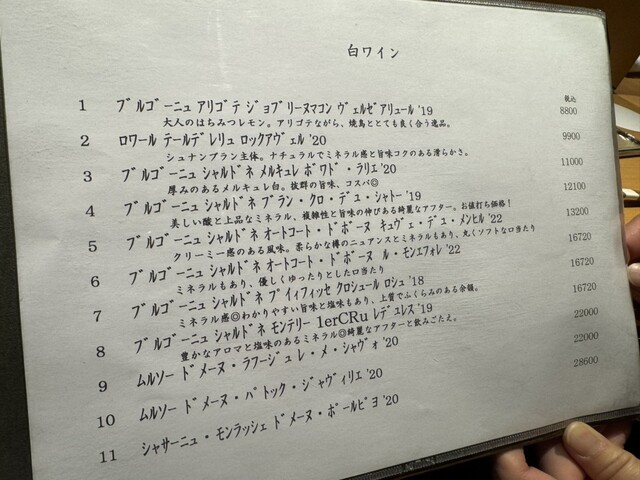 白ワイン
税込
1 ブルゴーニュ アリゴテ ジョブリーヌマコン ヴェルゼアリュール '19 8800
大人のはちみつレモン。アリゴテながら、焼鳥ととても良く合う逸品。
2 ロワール テールデレリュ ロックアヴェル '20 9900
シュナンブラン主体。ナチュラルでミネラル感と旨味コクのある滑らかさ。
3 ブルゴーニュ シャルドネ メルキュレ ボワド・ラリエ '20 11000
厚みのあるメルキュレ白。抜群の旨味、コスパ◎
4 ブルゴーニュ シャルドネ ブラン・クロ・デユ・シャトー '19 12100
美しい酸と上品なミネラル、複雑性と旨味の伸びある綺麗なアフター。お値打ち価格!
5 ブルゴーニュ シャルドネ オートコート・ドボーヌ キュヴェ・デユ・メンヒル '22 13200
クリーミー感のある風味。柔らかな樽のニュアンスとミネラルもあり、丸くソフトな口当たり
6 ブルゴーニュ シャルドネ オートコート・ドボーヌ ル・モンエフォレ '22 16720
ミネラルもあり、優しくゆったりとした口当たり
7 ブルゴーニュ シャルドネ プイィフィッセ クロシュール ロシュ '18 16720
ミネラル感◎わかりやすい旨味と塩味もあり、上質でふくらみのある余韻。
8 ブルゴーニュ シャルドネ モンテリー 1erCRu レデュレス '19 16720
豊かなアロマと塩味のあるミネラル◎綺麗なアフターと飲みごたえ。
9 ムルソー ドメーヌ・ラフージュ レ・メ・シャヴォ '20 22000
10 ムルソー ドメーヌ・パトック・ジャヴィリエ '20 22000
11 シャサーニュ・モンラッシェ ドメーヌ・ポールピヨ '20 28600